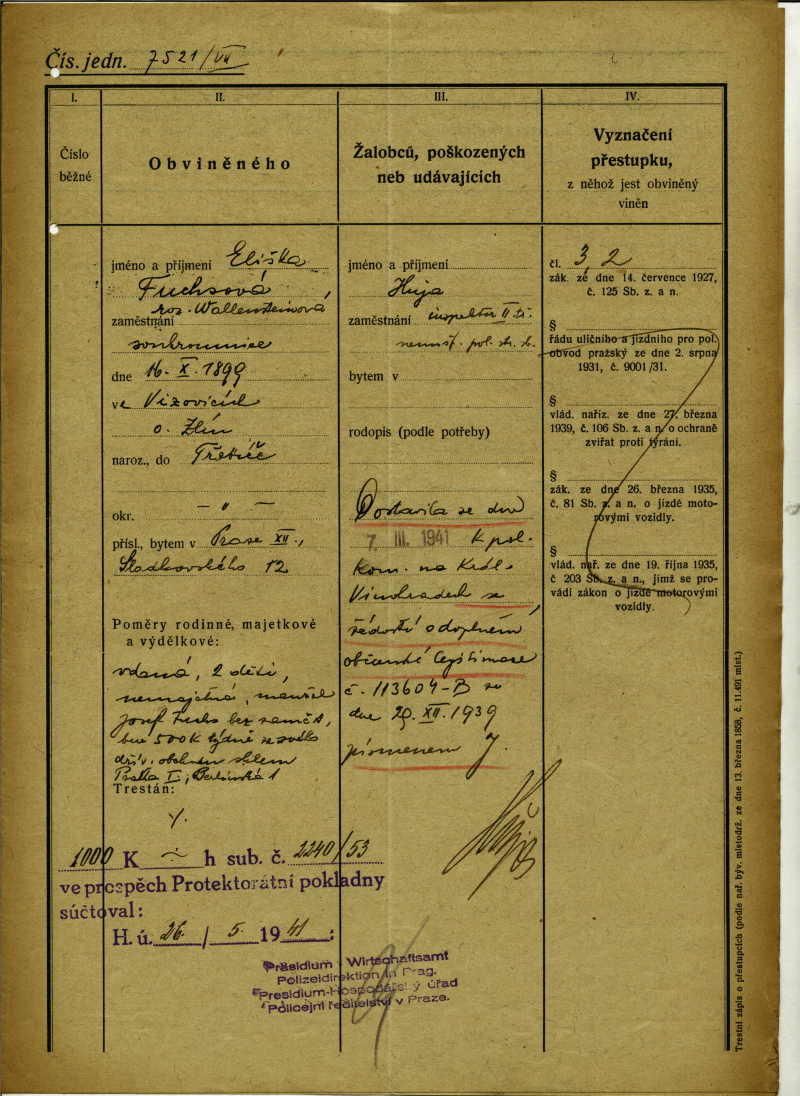 Čís. jedn. 7521/VII
I.
II.
III.
IV.
Číslo
běžné
Obviněného
Žalobců, poškozených
neb udávajících
Vyznačení
přestupku,
z něhož jest obviněný
viněn
jméno a příjmení Eliška
Fuchsová
roz. Wallensteinová
zaměstnání
soukromnice
dne 16. X. 1899
ve Vizovicích
o. Zlín
naroz., do Třebíče
okr. — " —
přísl., bytem v Praze XII.,
Sladkovského 12
Poměry rodinné, majetkové
a výdělkové:
vdaná, 2 děti,
nemajetná, manžel
Josef Fuchs bez zaměst.,
bere 500 K týdně ze svého
dřív. obchodu sklem
Praha I., 1
Trestán:
jméno a příjmení
Huja
zaměstnání inspektor II. tř.
neunif. pol. str. sb.
bytem v
rodopis (podle potřeby)
Dostavila se dne
7. III. 1941 k pol.
kom. na Král.
Vinohradech se
žádostí o doplnění
občanské legitimace
č. 113604-B ze
dne 29. XII. 1939
písmenem J.
čl. 3, 2
zák. ze dne 14. července 1927,
č. 125 Sb. z. a n.
§
řádu uličního a jízdního pro pol.
obvod pražský ze dne 2. srpna
1931, č. 9001/31.
§
vlád. naříz. ze dne 27. března
1939, č. 106 Sb. z. a n. o ochraně
zvířat proti týrání.
§
zák. ze dne 26. března 1935,
č. 81 Sb. z. a n. o jízdě moto-
rovými vozidly.
§
vlád. nař. ze dne 19. října 1935,
č 203 Sb. z. a n., jímž se pro-
vádí zákon o jízdě motorovými
vozidly.
1000 K h sub. č. 2240/53
ve prospěch Protektorátní pokladny
súčtoval:
H. ú. 26. / 5. 1941:
Präsidium - Wirtschaftsamt
Polizeidirektion in Prag.
Presidium-Hospodářský úřad
Policejní ředitelství v Praze.
Trestní zápis o přestupcích (podle nař. býv. místodrž. ze dne 13. března 1858, č. 11.491 míst.)